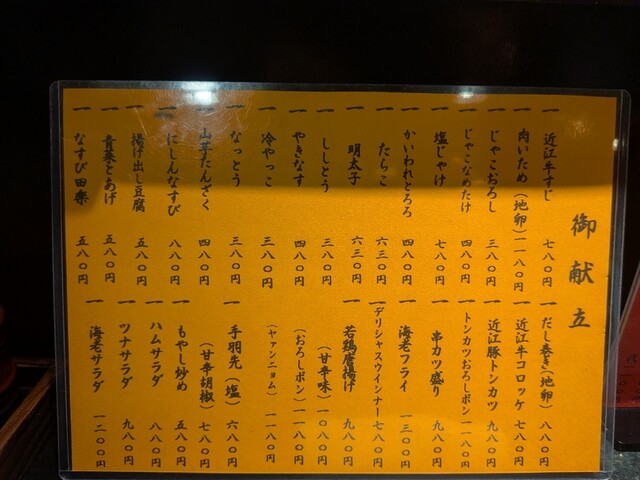 御献立
一 近江牛すじ 七八〇円
一 肉いため(地卵) 一一八〇円
一 じゃこおろし 三八〇円
一 じゃこなめたけ 四八〇円
一 塩じゃけ 七八〇円
一 かいわれとろろ 四八〇円
一 たらこ 六三〇円
一 明太子 六三〇円
一 ししとう 三八〇円
一 やきなす 四八〇円
一 冷やっこ 三八〇円
一 なっとう 三八〇円
一 山芋たんざく 四八〇円
一 にしんなすび 八八〇円
一 揚げ出し豆腐 五八〇円
一 青菜とあげ 五八〇円
一 なすび田楽 五八〇円
一 だし巻き(地卵) 八八〇円
一 近江牛コロッケ 七八〇円
一 近江豚トンカツ 九八〇円
一 トンカツおろしポン 一一八〇円
一 串カツ盛り 九八〇円
一 海老フライ 一三八〇円
一 デリシャスウインナー 七八〇円
一 若鶏唐揚げ 九八〇円
(甘辛味) 一〇八〇円
(おろしポン) 一一八〇円
(ヤァンニョム) 一一八〇円
一 手羽先(塩) 六八〇円
(甘辛胡椒) 七八〇円
一 もやし炒め 五八〇円
一 ハムサラダ 八八〇円
一 ツナサラダ 九八〇円
一 海老サラダ 一二〇〇円